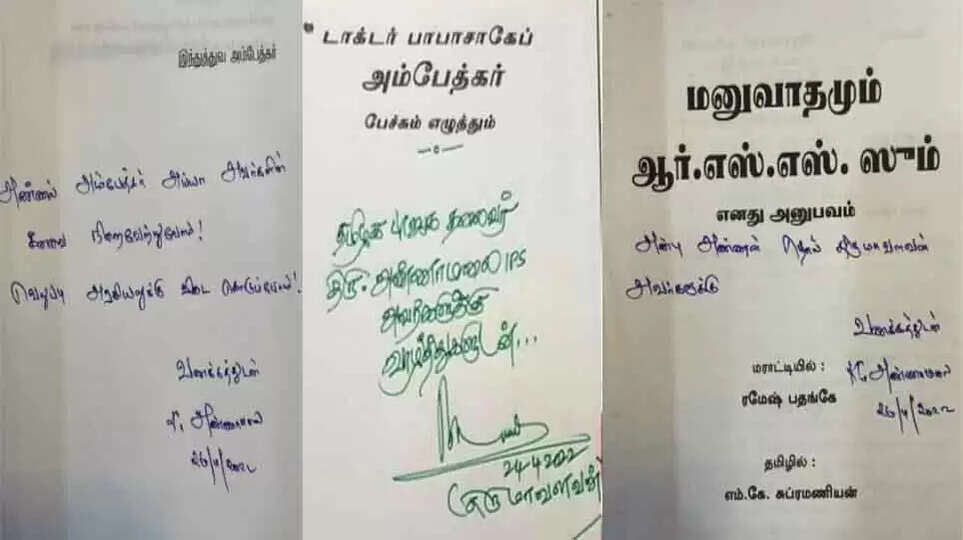 இந்துத்துவ அம்பேத்கர்
அண்ணல் அம்பேத்கர் அய்யா அவர்களின்
கனவை நிறைவேற்றுவோம்!
வெறுப்பு அரசியலுக்கு விடை கொடுப்போம்!
வணக்கத்துடன்
அண்ணாமலை
டாக்டர் பாபாசாகேப்
அம்பேத்கர்
பேச்சும் எழுத்தும்
தமிழக பாஜக தலைவர்
திரு. அண்ணாமலை IPS
அவர்களுக்கு
வாழ்த்துகளுடன்...
24-4-2022
திருமாவளவன்
மனுவாதமும்
ஆர்.எஸ்.எஸ். ஸும்
எனது அனுபவம்
அன்பு அண்ணன் தொல் திருமாவளவன்
அவர்களுக்கு
வணக்கத்துடன்
மராட்டியில் : K. அண்ணாமலை
ரமேஷ் பதங்கே
தமிழில் :
எம்.கே. சுப்ரமணியன்